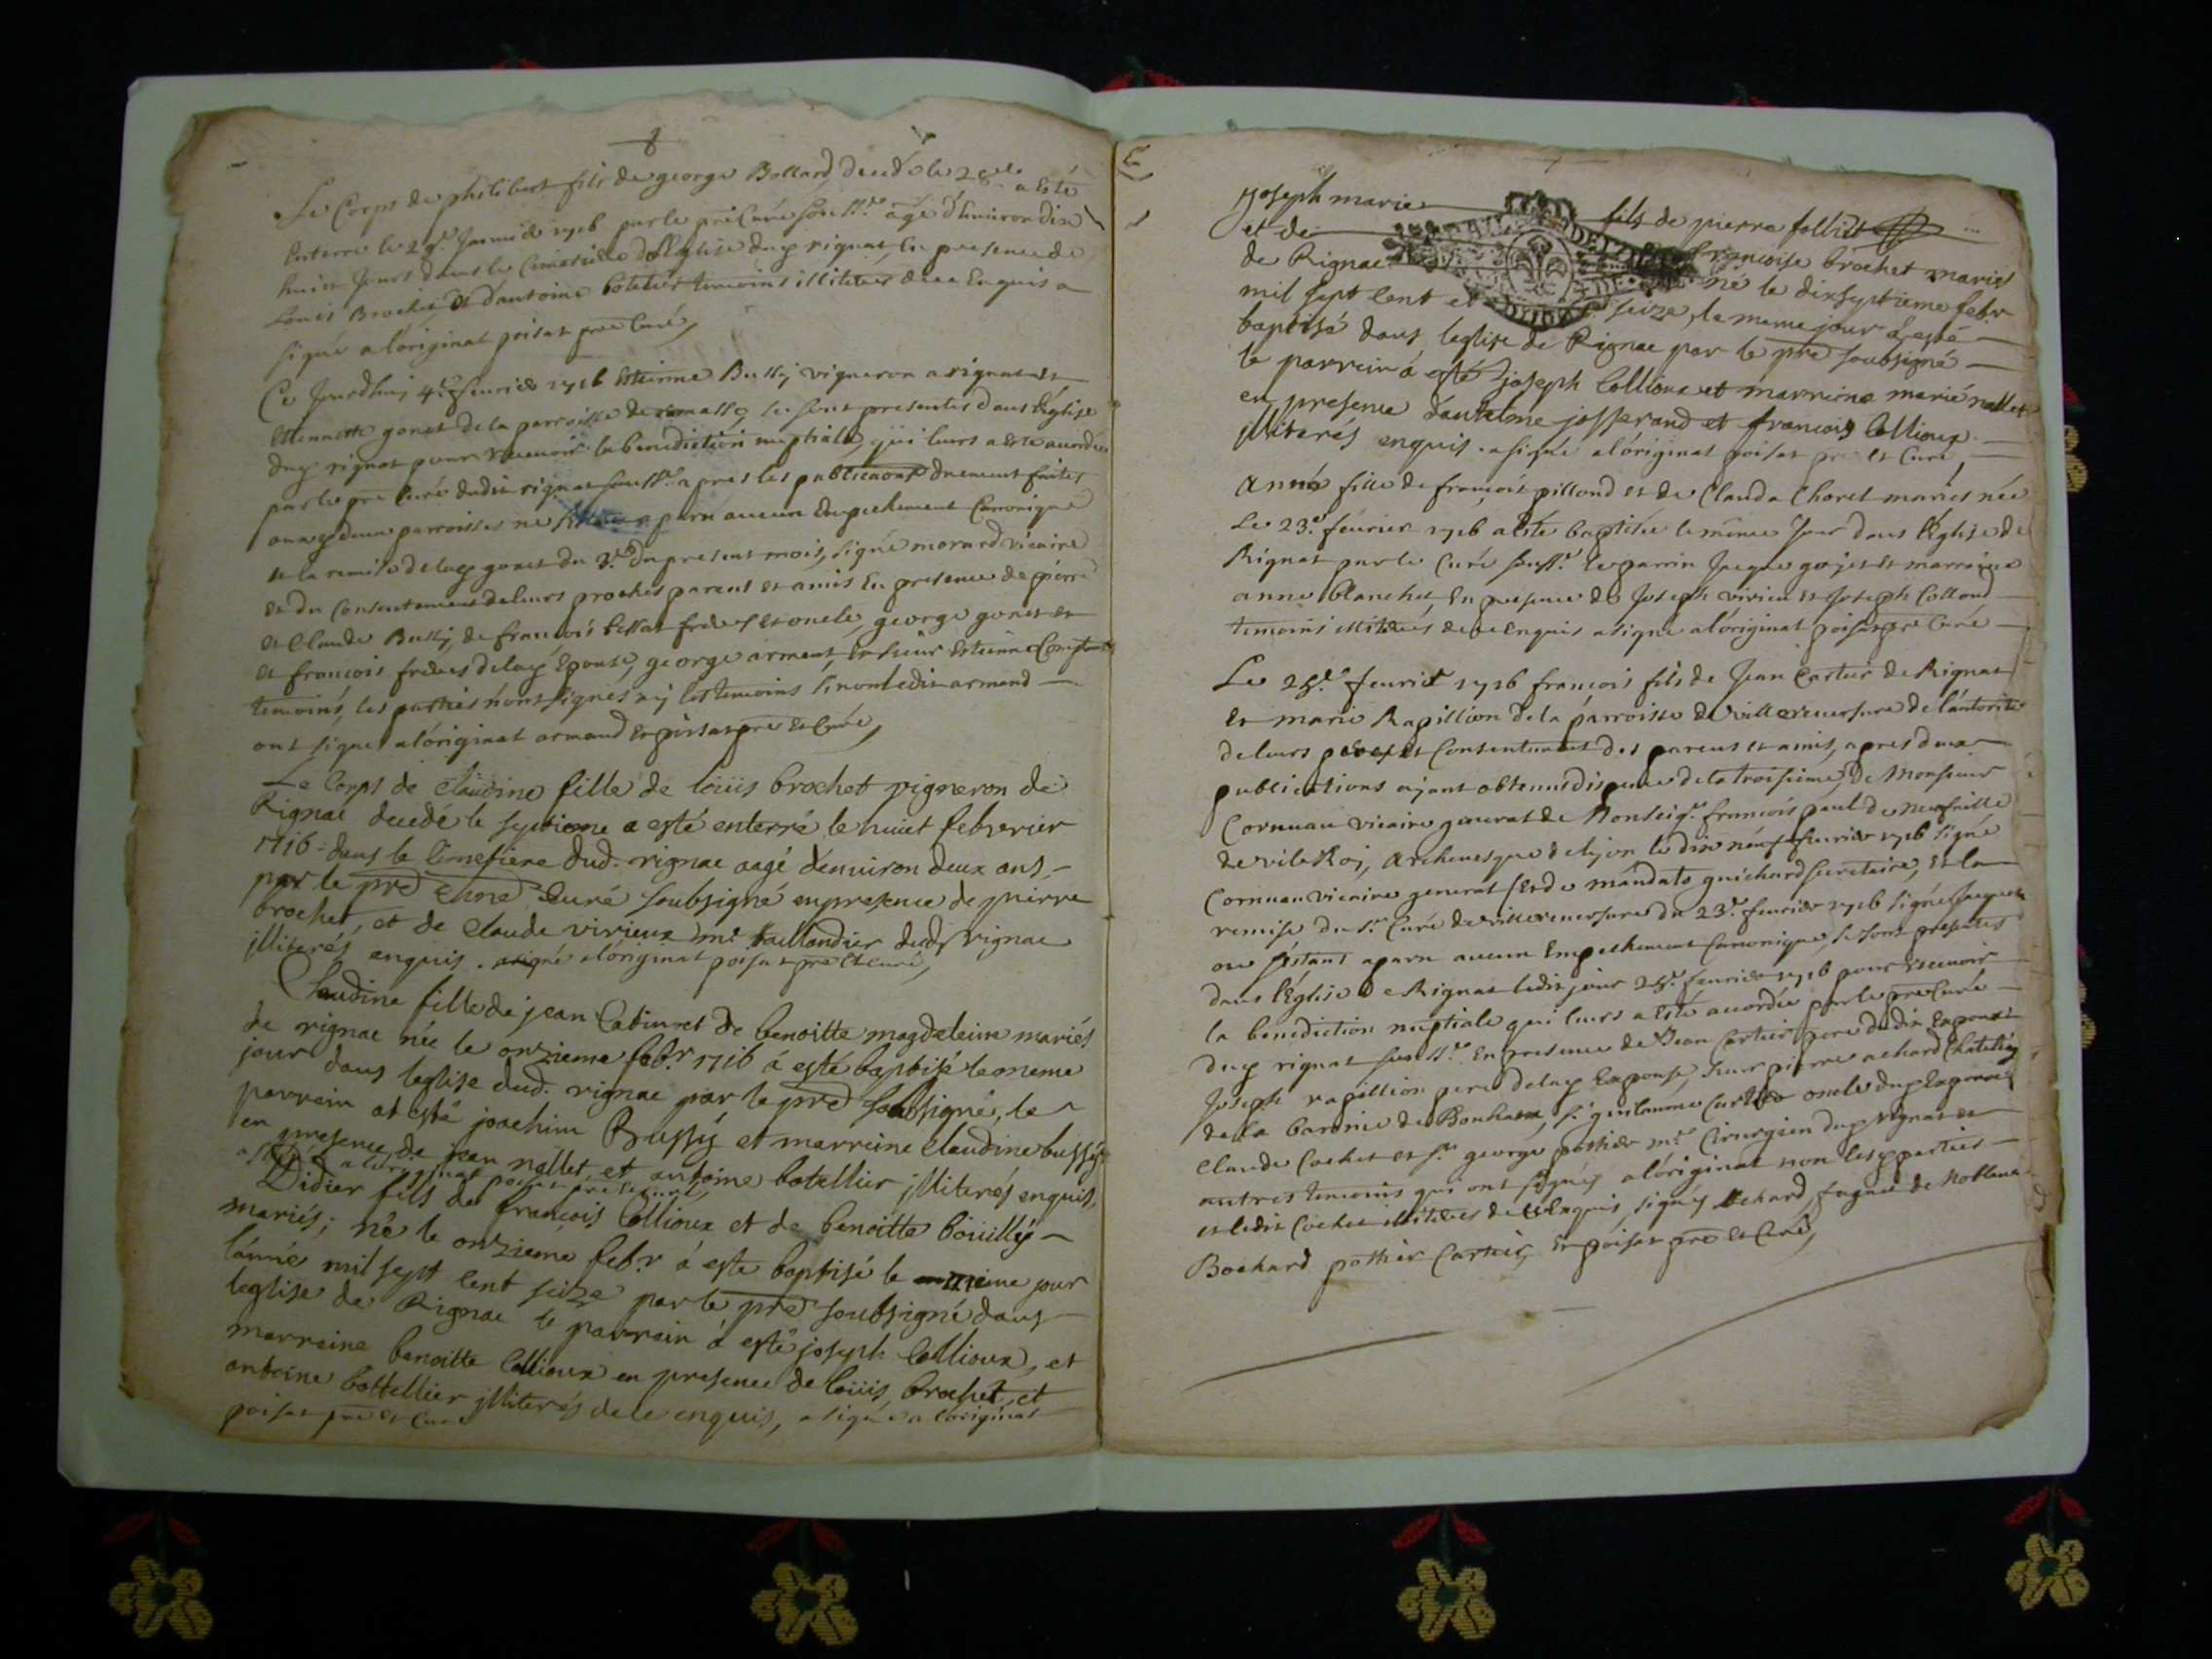 8
Le Corps de philibert fils de george Bollard, decedé le 28e. a esté
enterré le 29e. Janvier 1716 par le pre Curé souss.é agé d'environ dix
huit Jours dans le Cimetiere de l'Eglise dud rignat, En presence de
Louis Brochet et d'antoine botelier temoins illiterés de ce Enquis a
signé a l'original poisat pre Curé,
Ce Jourdhuy 4e. feurier 1716 Estienne Bussy vigneron a rignat et
Estiennette gonet de la parroisse de ramasse se sont presentés dans l'Eglise
dud rignat pour recevoir la benediction nuptiale, qui leurs a esté accordée
par le pre Curé dudit rignat souss.é apres les publications duement faites
aux deux parroisses ne aparu aucun Empechement Canonique
et la remise de lad gonet du 3e. du present mois, signé morard vicaire
et du Consentement de leurs proches parens et amis En presence de pierre
et Claude Bussy, de francois bessat frere et oncle, george gonet et
et francois freres de lad Epouse, george armand, Estienne
temoins, les parties n'ont signés ny les temoins sinon ledit armand
ont signé a l'original armand Et poisat pre et Curé,
Le Corps de Claudine fille de loüis brochet vigneron de
Rignac decedé le septieme a esté enterré le huict febvrier
1716 dans le Cimetiere dud. rignac aagé d'environ deux ans,
par le pre Curé soubsigné en presence de pierre
brochet, et de Claude virieux me taillandier dud rignac
illiterés enquis. a signé a l'original poisat pre et curé,
Claudine fille de jean Cabinet de benoitte magdeleine mariés
de rignac née le onzieme feb.r 1716 á esté baptisé le meme
jour dans leglise dud. rignac par le pre soubsigné, le
parrain at esté joachim Bussÿ et marreine Claudine bussÿ
en presence de jean nallet, et antoine botellier illiterés enquis,
a signé a l'original poisat pre et curé,
Didier fils de françois Collioux et de benoitte boüillÿ
mariés; né le onzieme feb.r á esté baptisé le meme jour
lannée mil sept cent seize par le pre soubsigné dans
leglise de Rignac le parrain á esté joseph Collioux, et
marreine benoitte Collioux en presence de loüis, brochet, et
antoine bottellier illiterés de ce enquis, a signé a l'original
poisat pre et Curé
Joseph marie fils de pierre follict
et de francoise brochet mariés
de Rignac né le dixseptieme feb.r
mil sept cent et seize, le meme jour á esté
baptisé dans leglise de Rignac par le pre soubsigné
le parrein á esté joseph Collioux et marreine marie nallet
en presence d'antelme josserand et françois Collioux
illiterés enquis. a signé a l'original poisat pre et Curé,
Anne fille de françois pillond et de Clauda Choret mariés née
Le 23e. feurier 1716 a esté baptisée le même Jour dans l'Eglise de
Rignat par le Curé souss.é Le parrin Jacque gojet et marraine
anne blanchet, En presence de Joseph virieu et Joseph Collond
temoins illiterés de ce Enquis a signé a l'original poisat pre Curé
Le 25e. feurier 1716 francois fils de Jean Cartier de Rignat
et marie Rapillion de la parroisse de villereversure de l'autorité
de leurs peres et Consentement des parens et amis, apres deux
publications ayant obtenus dispense de la troisieme, de Monsieur
Cornuau vicaire general de Monseigr. francois paul de neufville
de vileRoi, Archevesque de lyon le dix neuf feurier 1716 signé
Cornuau vicaire general et de mandato guichard secretaire, et la
remise du sr. Curé de villereversure du 23e. feurier 1716 signé
ne s'estant aparu aucun Empechement Canonique, se sont presentés
dans l'Eglise de Rignat ledit jour 25e. feurier 1716 pour recevoir
la benediction nuptiale qui leurs a esté accordée par le pre Curé
dud rignat souss.é En presence de Jean Cartier pere dudit Epoux
Joseph rapillion pere de lad Epouse, sieur pierre achard Chatelin
de la baronie de Bonhaus, sr. guillaume Cartier oncle dud Epoux
Claude Cochet et sr. george pothier me. Cirurgien dud rignat et
autres temoins qui ont signés a l'original non lesd parties
et ledit Cochet illiterés de ce Enquis, signés Achard,
Bochard pothier Cartier, Et poisat pre et Curé,